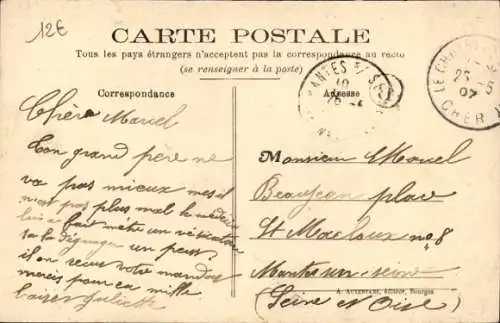 12€
CARTE POSTALE
Tous les pays étrangers n'acceptent pas la correspondance au recto
(se renseigner à la poste)
Correspondance
Adresse
MANTES S/ SEINE
10
LE CHATELET
25 - 5
07
CHER
Chère Marcel
Ton grand père ne
va pas mieux mes il
n'est pas plus mal le médecin
lui a fait mètre un vésicatoire
un peux
il on recus votre mandat
mercis pour ca mille
baiser Juliette
Monsieur Marcel
Beaujean place
St Macloux no 8
Mante sur seine
(Seine et Oise)
A. AUXENFANS, éditeur, Bourges